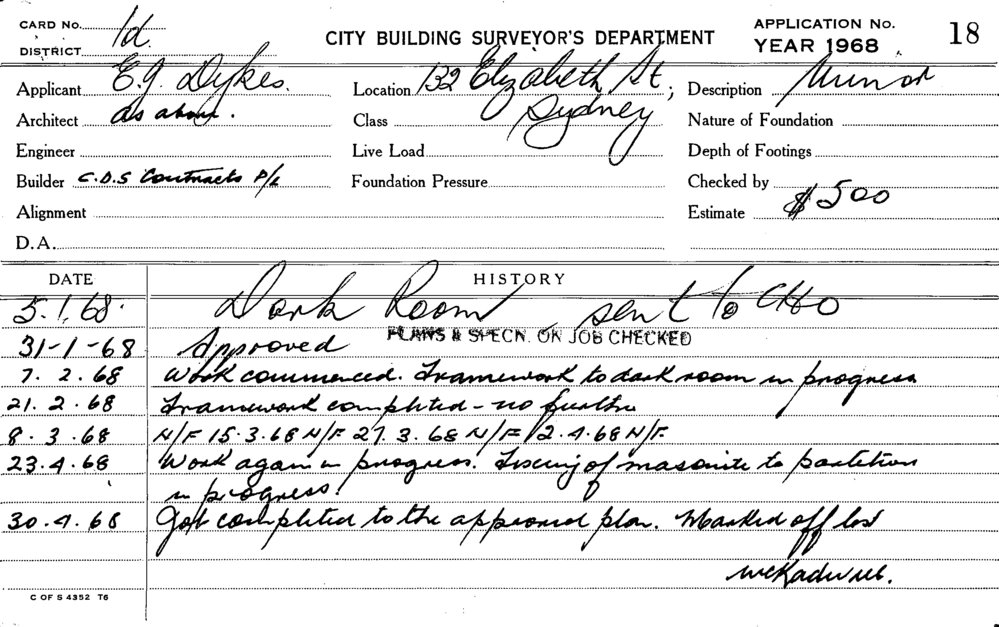 CARD No. 1d.
DISTRICT
CITY BUILDING SURVEYOR'S DEPARTMENT
APPLICATION No.
YEAR 1968
18
Applicant E.J. Dykes.
Location 132 Elizabeth St,
Sydney
Description Minor
Architect As above.
Class
Nature of Foundation
Engineer
Live Load
Depth of Footings
Builder C.D.S Contracts P/L
Foundation Pressure
Checked by
Alignment
Estimate $500
D.A.
DATE HISTORY
5.1.68. Dark Room sent to CHO
PLANS & SPECN. ON JOB CHECKED
31-1-68 Approved
7.2.68 Work commenced. Framework to dark room in progress
21.2.68 Framework completed - no further
8.3.68 N/F 15.3.68 N/F 27.3.68 N/F 12.4.68 N/F.
23.4.68 Work again in progress. Fixing of masonite to partition
in progress.
30.4.68 Job completed to the approved plan. Marked off list
C OF S 4352 T6